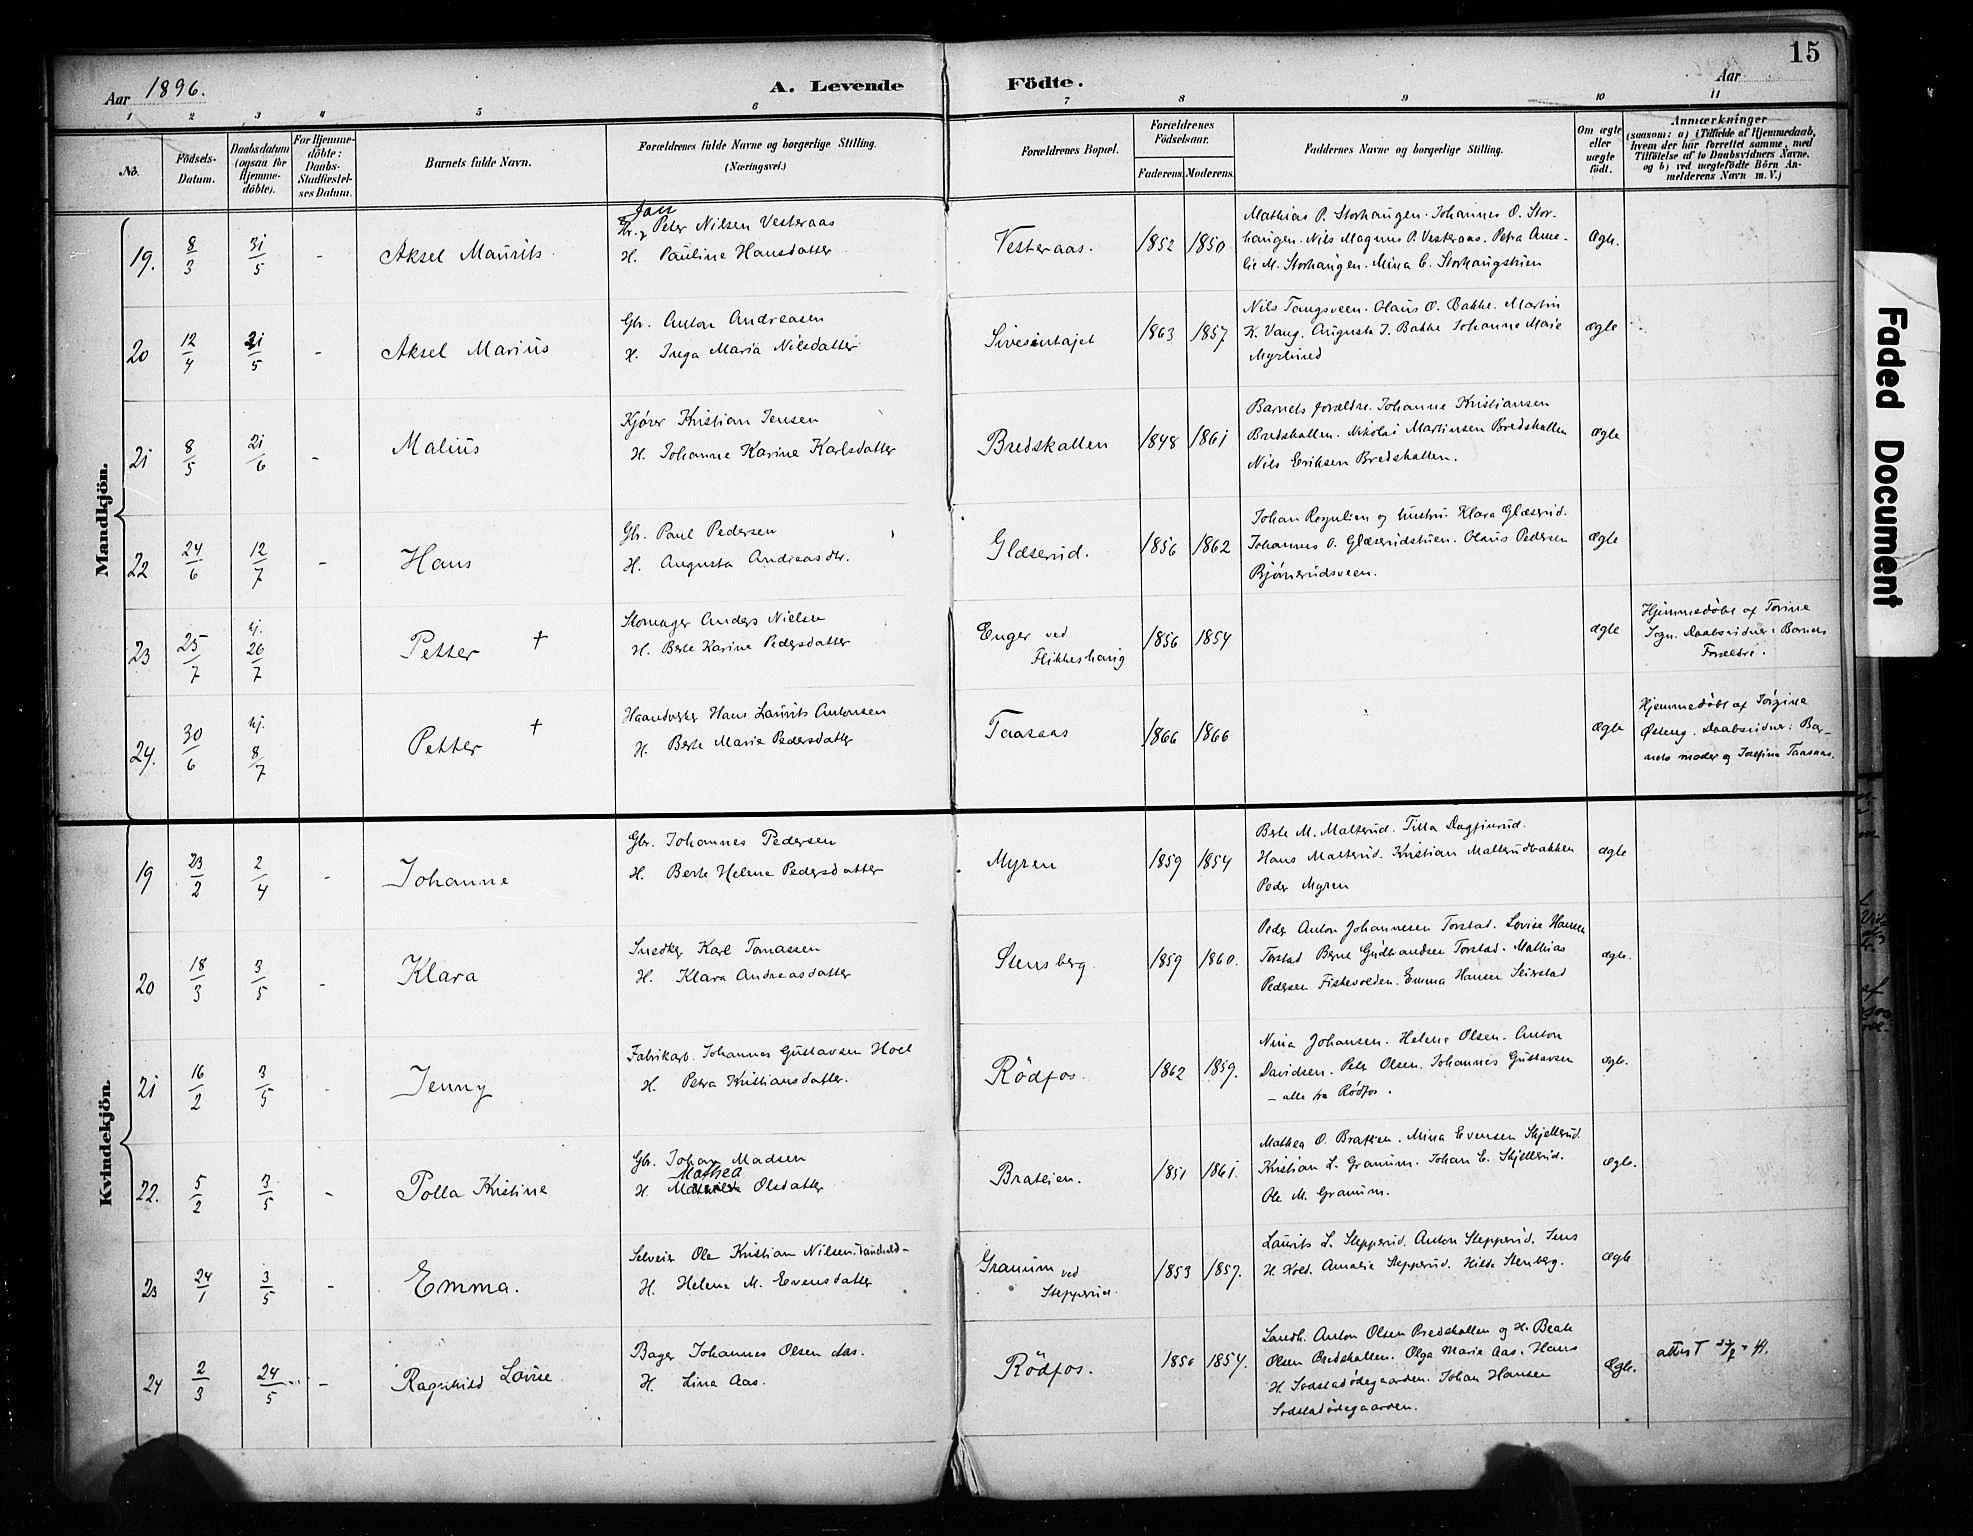 15
Aar 1896.
A. Levende
Födte.
Aar
1 2 3 4 5 6 7 8 9 10 11
No.
Födsels-Datum.
Daabsdatum (ogsaa for Hjemme-döbte).
For Hjemme-döbte: Daabs-Stadfæstel-ses Datum.
Barnets fulde Navn.
Forældrenes fulde Navne og borgerlige Stilling. (Næringsvei.)
Forældrenes Bopæl.
Forældrenes Födselsaar.
Faderens. Moderens.
Faddernes Navne og borgerlige Stilling.
Om ægte eller uægte födt.
Anmærkninger
(saasom: a) i Tilfælde af Hjemmedaab,
hvem der har forrettet samme, med
Tilföielse af to Daabsvidners Navne,
og b) ved uægtefödte Börn An-
melderens Navn m. V.)
Mandkjön.
19. 8/3 31/5 - Aksel Maurits.
Peter Nilsen Vesteraas
H. Pauline Hansdatter
Vesteraas. 1852 1850
Mathias P. Storhaugen. Johannes O. Stor-
haugen. Nils Magnus P. Vesteraas. Petra Ama-
lie M. Storhaugen. Mina C. Storhaugstuen
Ægte.
20 12/4 21/5 - Aksel Marius
Gbr. Anton Andreasen
H. Inga Maria Nilsdatter
1863 1857
Nils Tangsveen. Olaus O. Bakke. Martin
K. Vang. Augusta J. Bakke Johanne Marie
Myrlund
ægte
21 8/5 21/6 - Malius
Kjører Kristian Jensen
H. Johanne Karine Karlsdatter
Bredskallen 1848 1861
Barnets forældre. Johanne Kristiansen
Bredskallen. Nikolai Martinsen Bredskallen
Nils Eriksen Bredskallen.
ægte
22 24/6 12/7 - Hans
Gbr. Paul Pedersen
H. Augusta Andreasdtr.
Glæserud. 1856 1862
Johan Regulien og hustru. Klara Glæserud.
Johannes O. Glæserudstuen. Olaus Pedersen
Bjørnerudsveen.
ægte
23 25/7 hj. 26/7 Petter †
Skomager Anders Nielsen
H. Berte Karine Pedersdatter
Enger ved
Flikkeshaug 1856 1854
ægte
Hjemmedøbt af Torine
Sogn. Daabsvidner: Barnets
Forældre.
24. 30/6 hj. 8/7 Petter †
Haandverker Hans Laurits Antonsen
H. Berte Marie Pedersdatter
Taasaas 1866 1866
ægte
Hjemmedøbt af Jørgine
Østeng. Daabsvidner: Bar-
nets moder og Josefine Taasaas.
Kvindekjön.
19 23/2 2/4 - Johanne
Gbr. Johannes Pedersen
H. Berte Helene Pedersdatter
Myren 1859 1854
Berte M. Malterud. Tilla Dagfinrud.
Hans Malterud. Kristian Malterudbakken
Peder Myren
ægte
20 18/3 3/5 - Klara
Snedker Karl Tomassen
H. Klara Andreasdatter
Stensberg. 1859 1860.
Peder Anton Johannesen Torstad. Lovise Hansen
Torstad Bernt Gudbrandsen Torstad. Mathias
Pedersen Fiskevolden. Emma Hansen Seierstad
ægte.
21 16/2 3/5 - Jenny
Fabrikarb. Johannes Gustavsen Hoel
H. Petra Kristiansdatter.
Rödfos. 1862 1859.
Nina Johansen. Helene Olsen. Anton
Davidsen. Peter Olsen. Johannes Gustavsen
- alle fra Rödfos.
ægte.
22. 5/2 3/5 - Polla Kristine
Gbr. Johan Madsen
Mathea
H. Olsdatter
Brateien. 1851 1861.
Mathea O. Brateien. Mina Evensen Skjellerud.
Kristian L. Granum. Johan E. Skjellerud.
Ole M. Granum.
ægte.
23 24/1 3/5 - Emma.
Selveier Ole Kristian Nilsen
H. Helene M. Evensdatter
Granum ved
Stepperud. 1853 1857.
Laurits L. Stepperud. Anton Stepperud. Jens
H. Hoel. Amalie Stepperud. Hilda Stenberg.
ægte
24 2/3 24/5 - Ragnhild Lovise.
Bager Johannes Olsen Aas.
H. Lina Aas.
Rödfos. 1850 1854.
Landh. Anton Olsen Bredskallen og H. Beate
Olsen Bredskallen. Olga Marie Aas. Hans
H. Sodstadødegaarden. Johan Hansen
Sodstadødegaarden.
Ægte.
attest
Faded Document